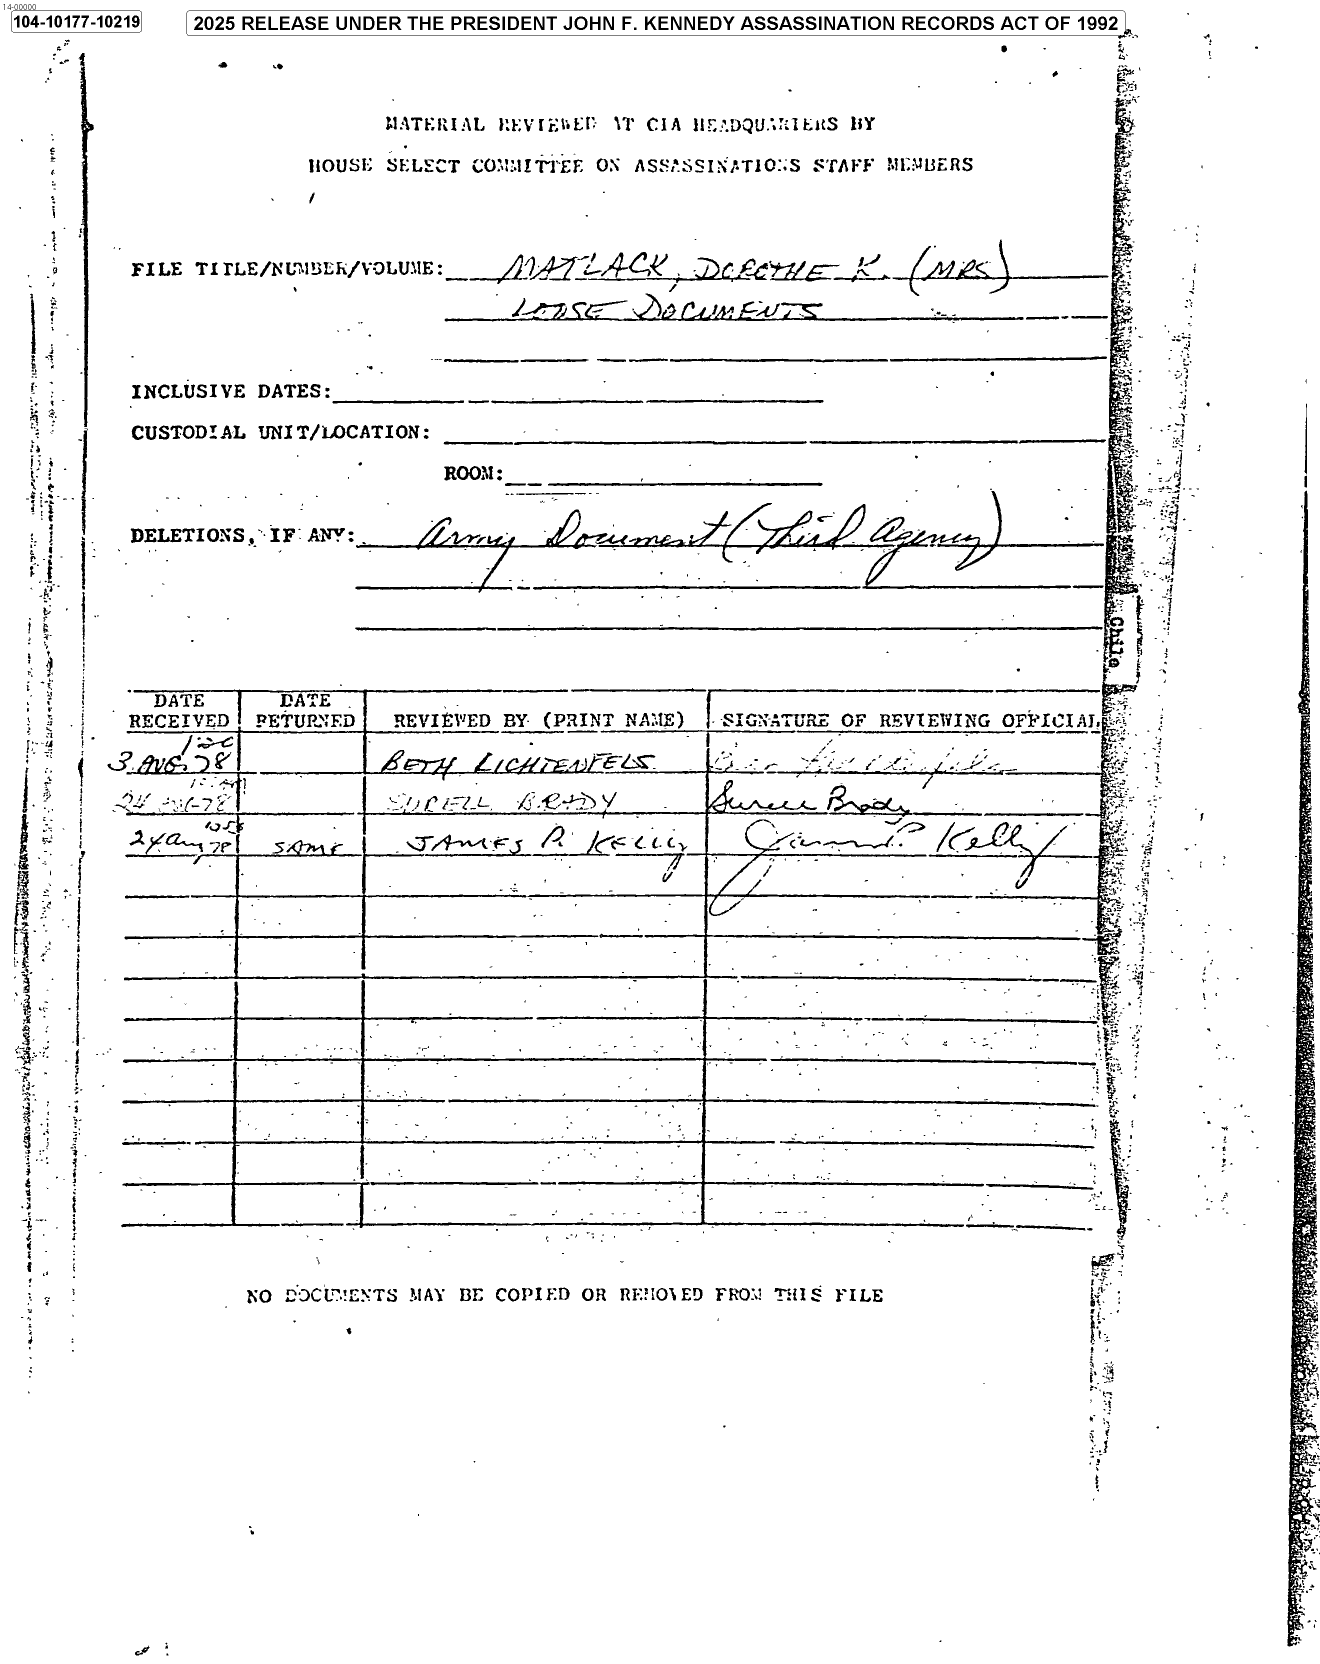 14-00000
104-10177-10219
2025 RELEASE UNDER THE PRESIDENT JOHN F. KENNEDY ASSASSINATION RECORDS ACT OF 1992
MATERIAL REVIEWED AT CIA HEADQUARTERS BY
HOUSE SELECT COMMITTEE ON ASSASSINATIONS STAFF MEMBERS
FILE TITLE/NUMBER/VOLUME: MATLACK, DOROTHE K. (MRS)
LOOSE DOCUMENTS
INCLUSIVE DATES:
CUSTODIAL UNIT/LOCATION:
ROOM:
DELETIONS, IF ANY: Army Document (Third Agency)
Chile
DATE RECEIVED DATE RETURNED REVIEWED BY (PRINT NAME) SIGNATURE OF REVIEWING OFFICIAL
3 AUG 78 BETH LICHTENFELS Beth Lichtenfels
24 AUG 78 SURELL BRADY Surell Brady
24 Aug 78 SAME JAMES P. KELLY James P. Kelly
NO DOCUMENTS MAY BE COPIED OR REMOVED FROM THIS FILE